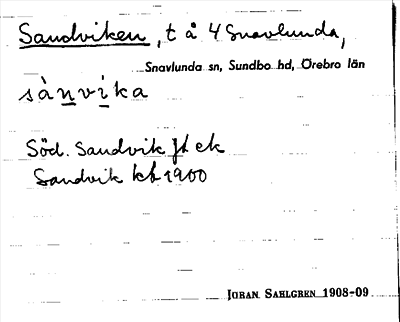 Sandviken, t å 4 Snavlunda,
Snavlunda sn, Sundbo hd, Örebro län
sànvika
Söd. Sandvik Jd ek
Sandvik kb 1900
JÖRAN SAHLGREN 1908-09